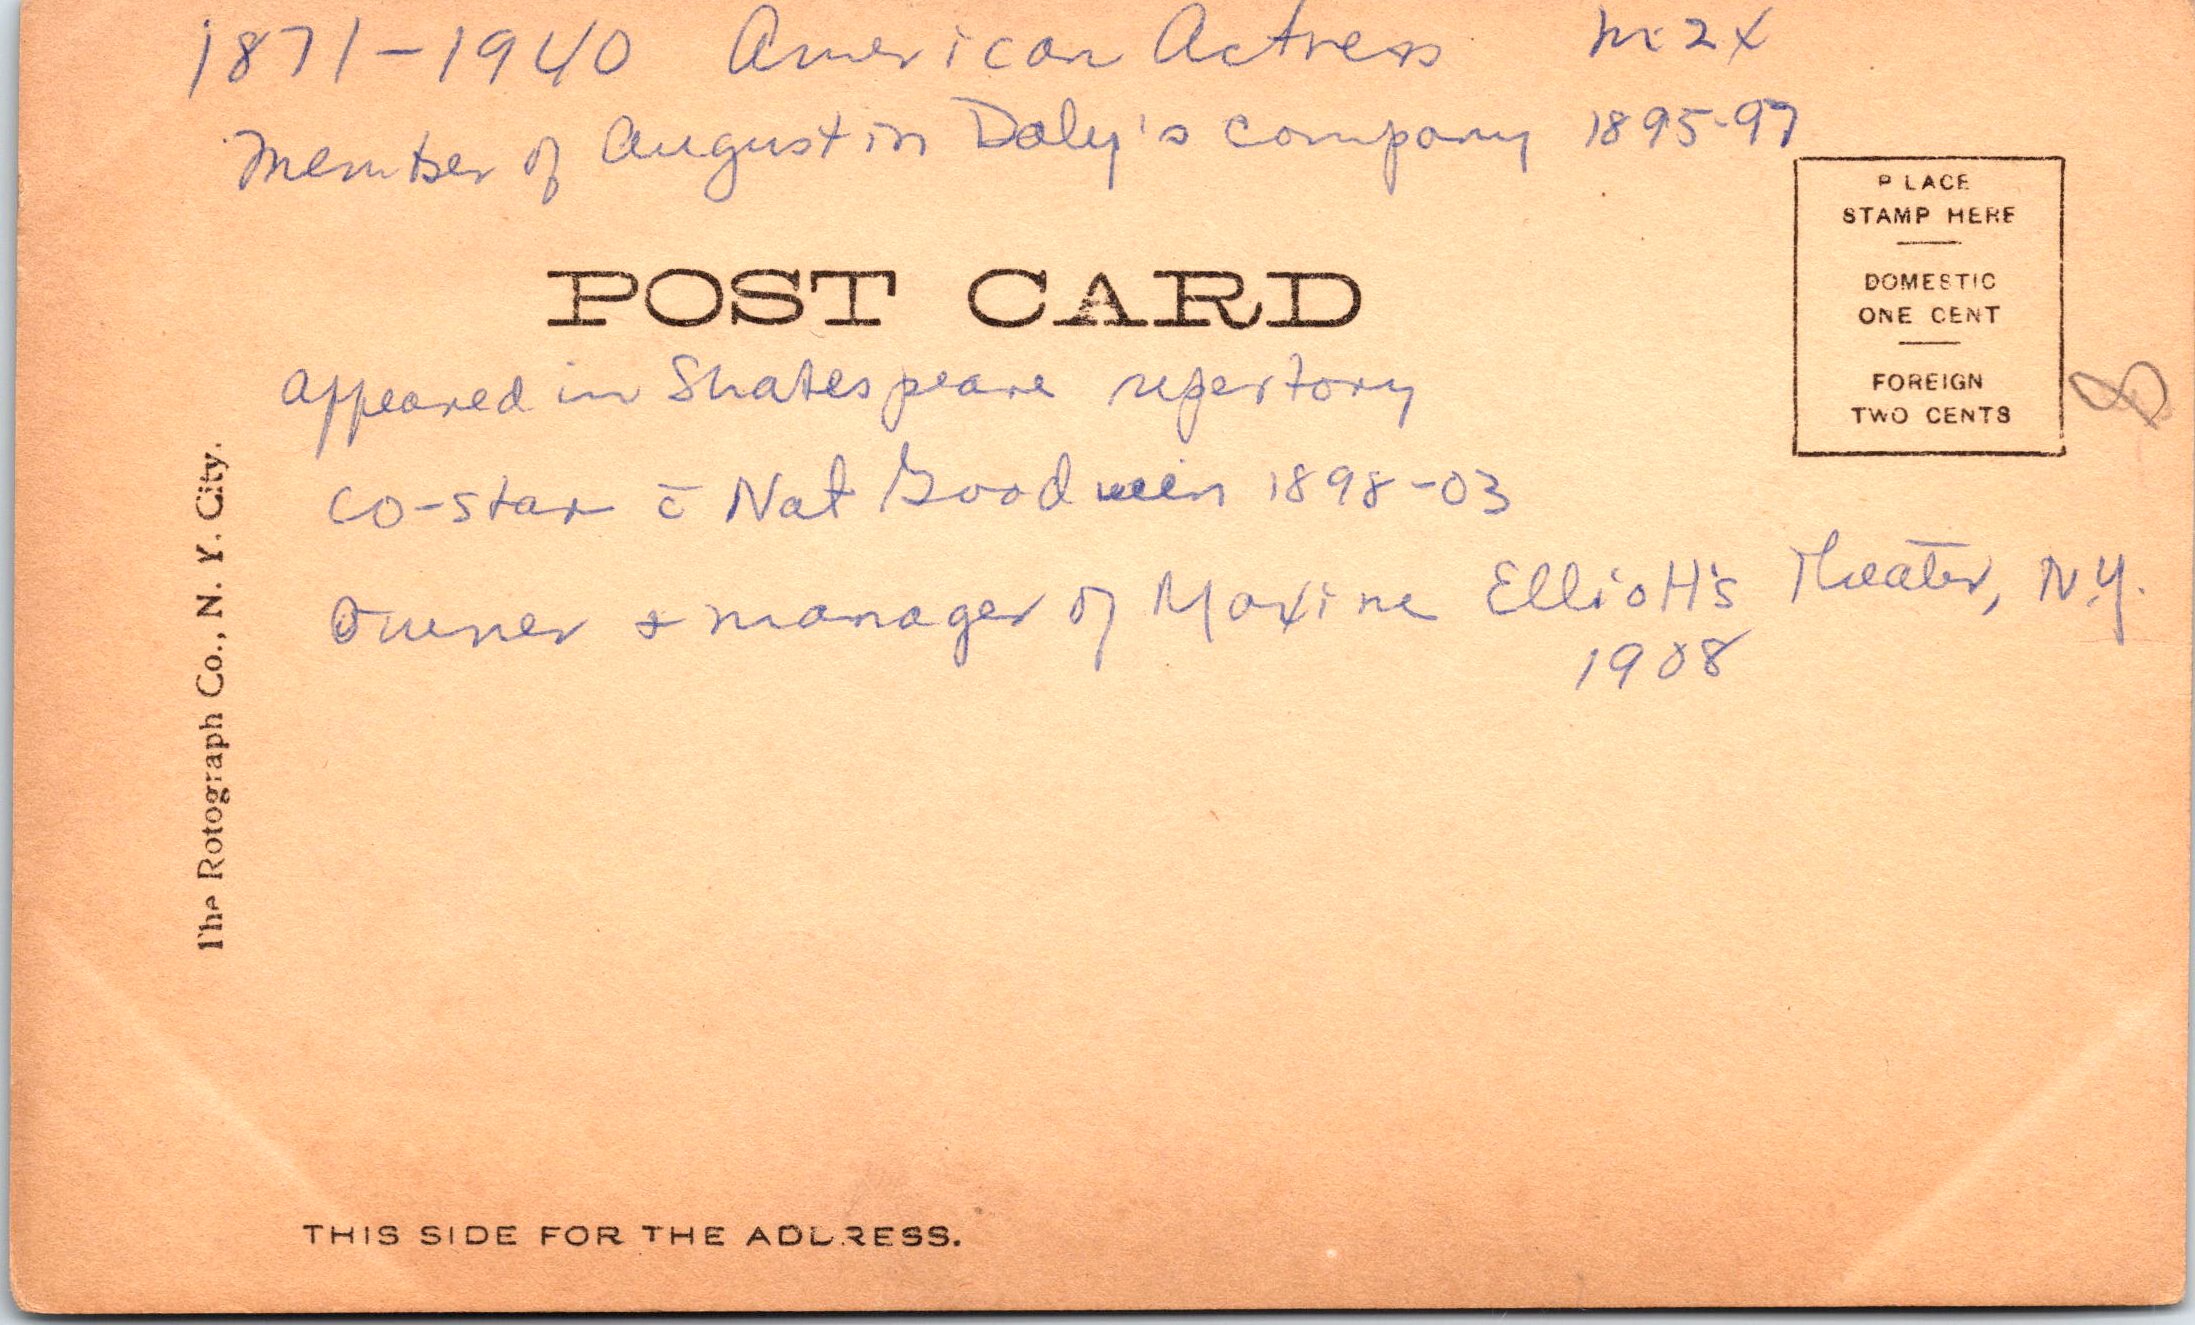 1871-1940 American Actress m2x
Member of Augustin Daly's company 1895-97
PLACE
STAMP HERE
DOMESTIC
ONE CENT
FOREIGN
TWO CENTS
POST CARD
appeared in Shakespeare repertory
co-star c̄ Nat Goodwin 1898-03
owner & manager of Maxine Elliott's Theater, N.Y.
1908
8
The Rotograph Co., N. Y. City.
THIS SIDE FOR THE ADDRESS.